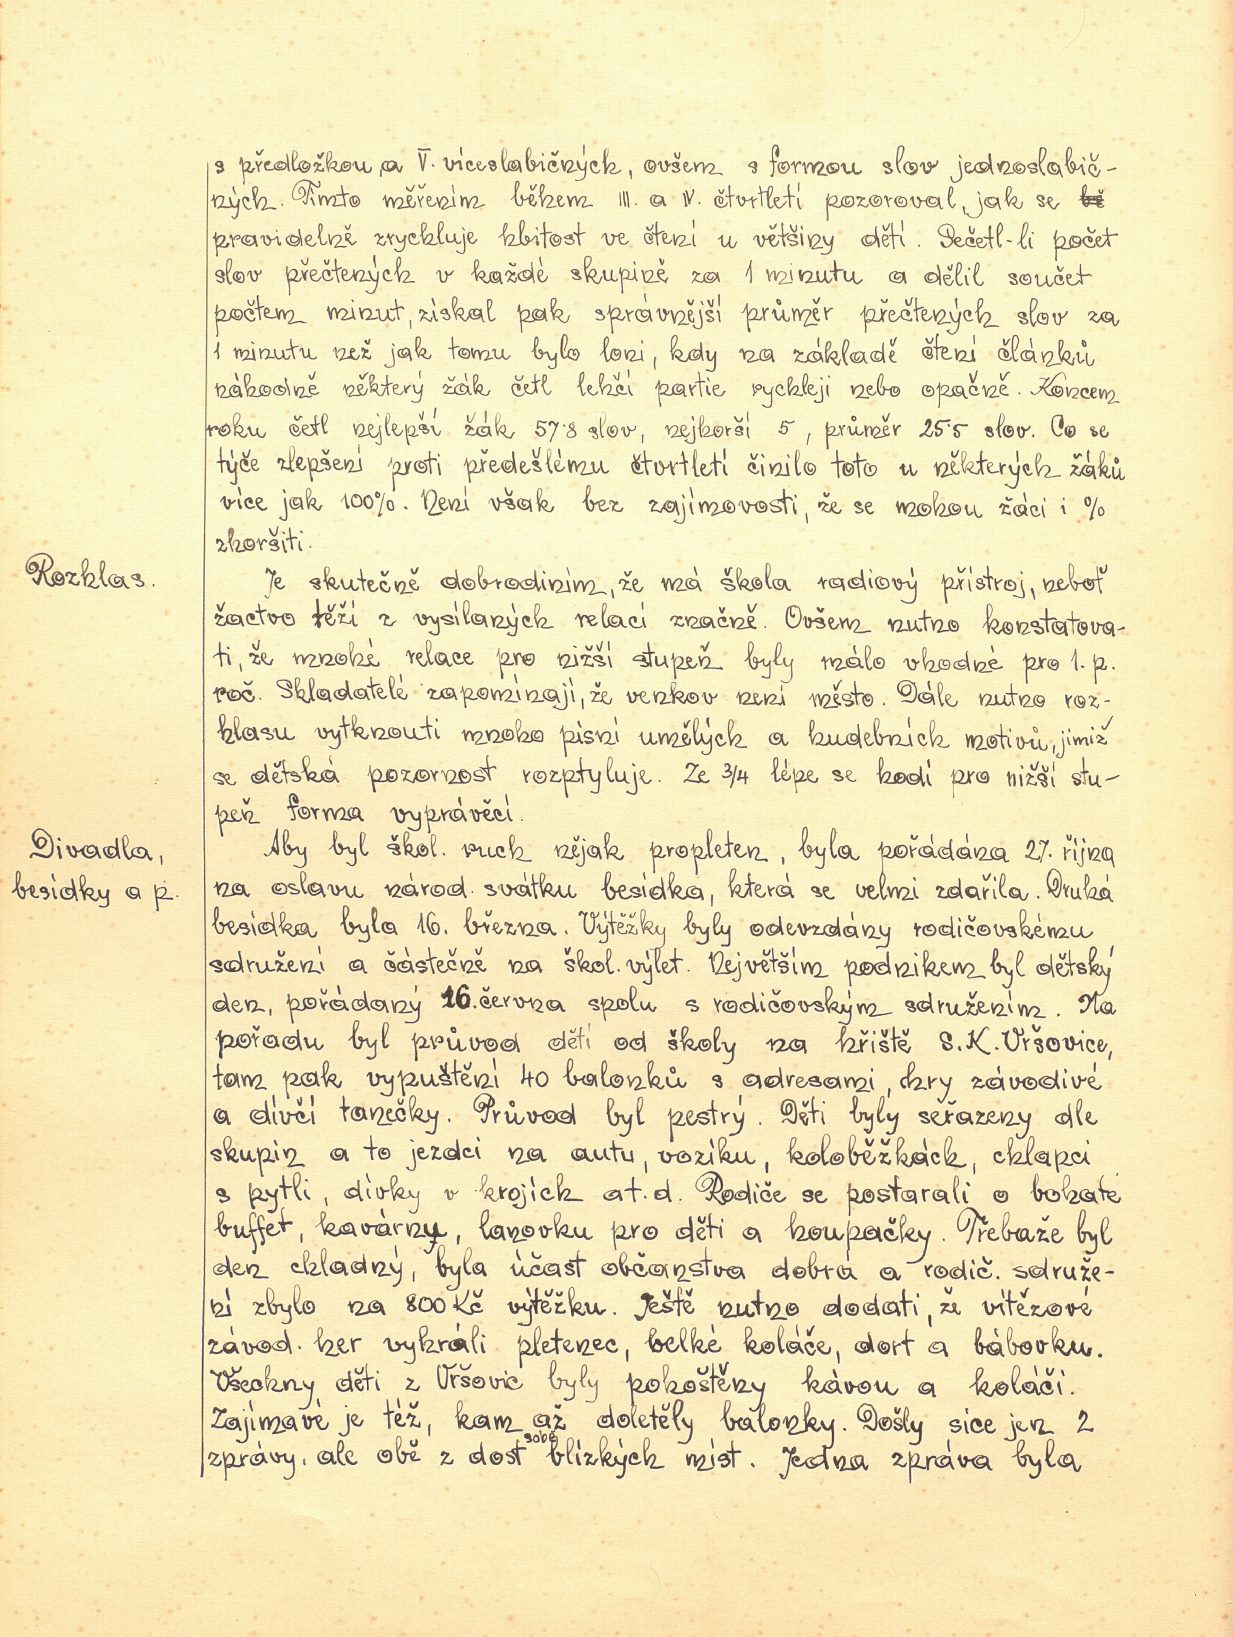 s předložkou a V. víceslabičných, ovšem s formou slov jednoslabič-
ných. Tímto měřením během III. a IV. čtvrtletí pozoroval, jak se bě
pravidelně zrychluje hbitost ve čtení u většiny dětí. Sečetl-li počet
slov přečtených v každé skupině za 1 minutu a dělil součet
počtem minut, získal pak správnější průměr přečtených slov za
1 minutu než jak tomu bylo loni, kdy na základě čtení článků
náhodně některý žák četl lehčí partie rychleji nebo opačně. Koncem
roku četl nejlepší žák 57·8 slov, nejhorší 5, průměr 25·5 slov. Co se
týče zlepšení proti předešlému čtvrtletí činilo toto u některých žáků
více jak 100%. Není však bez zajímovosti, že se mohou žáci i %
zhoršiti.
Rozhlas.
Je skutečně dobrodiním, že má škola radiový přístroj, neboť
žactvo těží z vysílaných relací značně. Ovšem nutno konstatova-
ti, že mnohé relace pro nižší stupeň byly málo vhodné pro 1. p.
roč. Skladatelé zapomínají, že venkov není město. Dále nutno roz-
hlasu vytknouti mnoho písní umělých a hudebních motivů, jimiž
se dětská pozornost rozptyluje. Ze 3/4 lépe se hodí pro nižší stu-
peň forma vyprávěcí.
Divadla,
besídky a p.
Aby byl škol. ruch nějak propleten, byla pořádána 27. října
na oslavu národ. svátku besídka, která se velmi zdařila. Druhá
besídka byla 16. března. Výtěžky byly odevzdány rodičovskému
sdružení a částečně na škol. výlet. Největším podnikem byl dětský
den, pořádaný 16. června spolu s rodičovským sdružením. Na
pořadu byl průvod dětí od školy na hřiště S.K. Vršovice,
tam pak vypuštění 40 balonků s adresami, hry závodivé
a dívčí tanečky. Průvod byl pestrý. Děti byly seřazeny dle
skupin a to jezdci na autu, vozíku, koloběžkách, chlapci
s pytli, dívky v krojích a t. d. Rodiče se postarali o bohaté
buffet, kavárny, lanovku pro děti a houpačky. Třebaže byl
den chladný, byla účast občanstva dobrá a rodič. sdruže-
ní zbylo na 800 Kč výtěžku. Ještě nutno dodati, že vítězové
závod. her vyhráli pletenec, velké koláče, dort a bábovku.
Všechny děti z Vršovic byly pohoštěny kávou a koláči.
Zajímavé je též, kam až doletěly balonky. Došly sice jen 2
zprávy, ale obě z dost sobě blízkých míst. Jedna zpráva byla